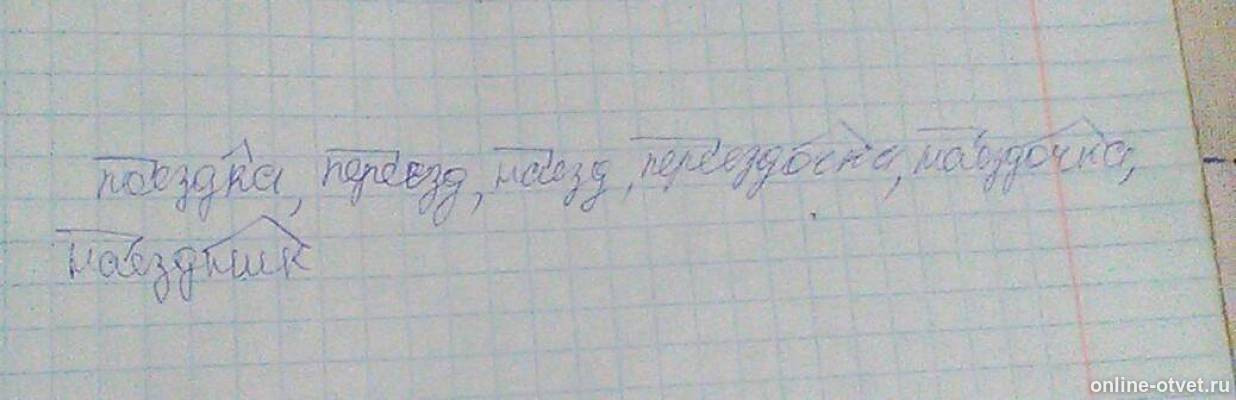 поездка, переезд, наезд, переездочка, наездочка,
наездник
online-otvet.ru